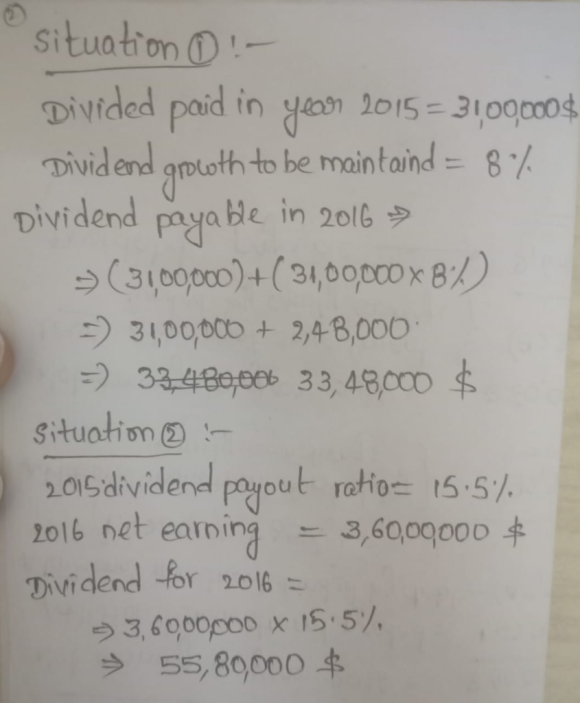 ②
Situation ① :-
Divided paid in year 2015 = 31,00,000$
Dividend growth to be maintaind = 8%
Dividend payable in 2016 ⇒
⇒ (31,00,000) + (31,00,000 x 8%)
⇒ 31,00,000 + 2,48,000
⇒ 33,480,000 33,48,000 $
Situation ② :-
2015 dividend payout ratio = 15.5%
2016 net earning = 3,60,00,000 $
Dividend for 2016 =
⇒ 3,60,00,000 x 15.5%
⇒ 55,80,000 $